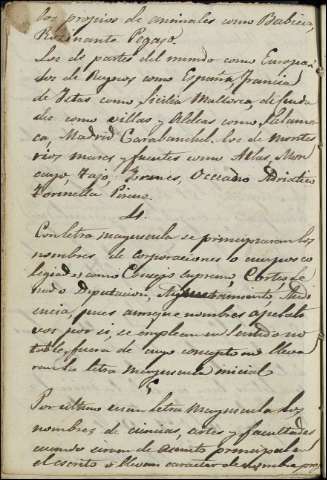 los propios de animales como Babieca,
Rocinante Pegaso.
Los de partes del mundo como Europa:
Los de Reynos como España, Francia
de Islas como Sicilia Mallorca, de ciuda
des como villas y Aldeas como Salama
ca, Madrid Carabanchel. los de montes
rios mares y fuentes como Atlas, Mon
cayo, Tajo, Oceano Adriatico
4
Con letra mayuscula se principiaran los
nombres de corporaciones o cuerpos co
legiados, como Consejo Supremo, Cortes, Se
nado Diputacion, Ayuntamiento, Audi
encia, pues aunque nombres apelati
vos por si, se emplean en sentido no
table, fuera de cuyo concepto no lleva
ran la letra mayuscula inicial
5
Por ultimo letra mayuscula los
nombres de ciencias, artes y facultades
cuando sirvan de asunto principal a
el escrito o lleven caracter de nombre pro